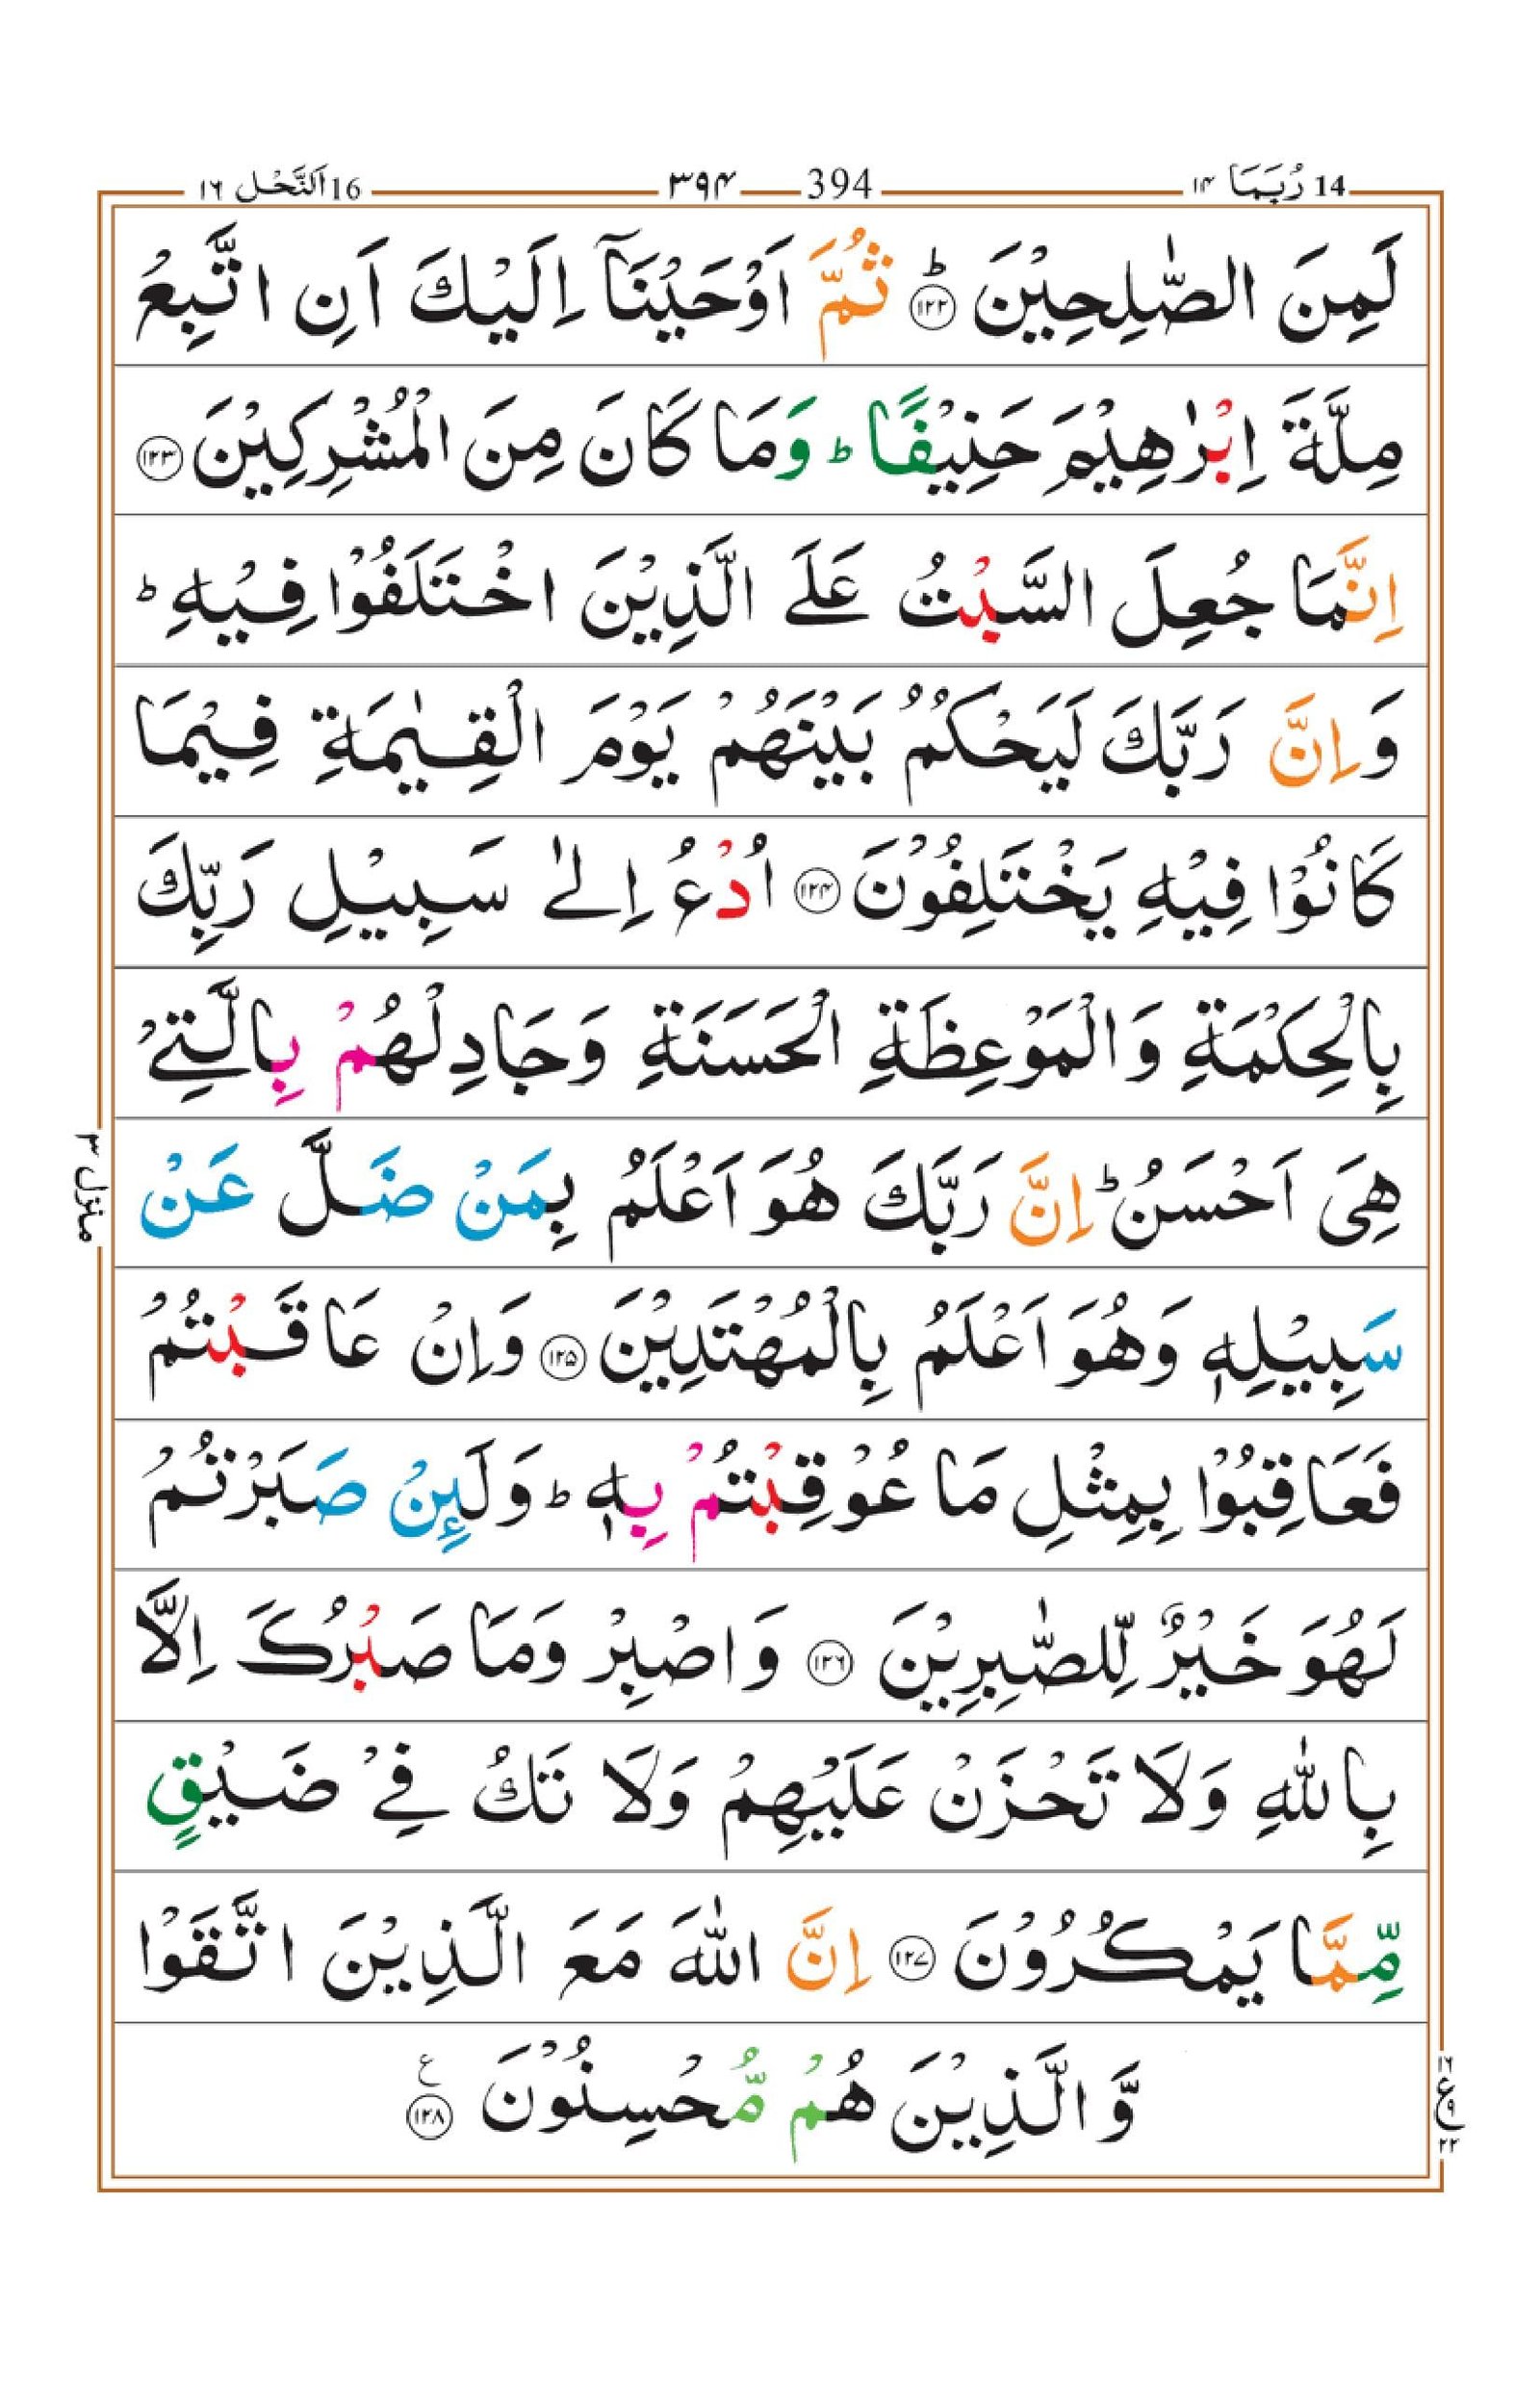 14 رُبَمَا ۱۴ 394 ۳۹۴ 16 اَلنَّحْل ۱۶
لَمِنَ الصّٰلِحِیْنَ ؕ ﴿۱۲۲﴾ ثُمَّ اَوْحَیْنَاۤ اِلَیْكَ اَنِ اتَّبِعْ
مِلَّةَ اِبْرٰهِیْمَ حَنِیْفًا ؕ وَمَا كَانَ مِنَ الْمُشْرِكِیْنَ ﴿۱۲۳﴾
اِنَّمَا جُعِلَ السَّبْتُ عَلَی الَّذِیْنَ اخْتَلَفُوْا فِیْهِ ؕ
وَاِنَّ رَبَّكَ لَیَحْكُمُ بَیْنَهُمْ یَوْمَ الْقِیٰمَةِ فِیْمَا
كَانُوْا فِیْهِ یَخْتَلِفُوْنَ ﴿۱۲۴﴾ اُدْعُ اِلٰی سَبِیْلِ رَبِّكَ
بِالْحِكْمَةِ وَالْمَوْعِظَةِ الْحَسَنَةِ وَجَادِلْهُمْ بِالَّتِیْ
هِیَ اَحْسَنُ ؕ اِنَّ رَبَّكَ هُوَ اَعْلَمُ بِمَنْ ضَلَّ عَنْ
سَبِیْلِهٖ وَهُوَ اَعْلَمُ بِالْمُهْتَدِیْنَ ﴿۱۲۵﴾ وَاِنْ عَاقَبْتُمْ
فَعَاقِبُوْا بِمِثْلِ مَا عُوْقِبْتُمْ بِهٖ ؕ وَلَىِٕنْ صَبَرْتُمْ
لَهُوَ خَیْرٌ لِّلصّٰبِرِیْنَ ﴿۱۲۶﴾ وَاصْبِرْ وَمَا صَبْرُكَ اِلَّا
بِاللّٰهِ وَلَا تَحْزَنْ عَلَیْهِمْ وَلَا تَكُ فِیْ ضَیْقٍ
مِّمَّا یَمْكُرُوْنَ ﴿۱۲۷﴾ اِنَّ اللّٰهَ مَعَ الَّذِیْنَ اتَّقَوْا
وَّ الَّذِیْنَ هُمْ مُّحْسِنُوْنَ ﴿۱۲۸﴾ ع
منزل ۳
۱۶
ع ۹
۲۲